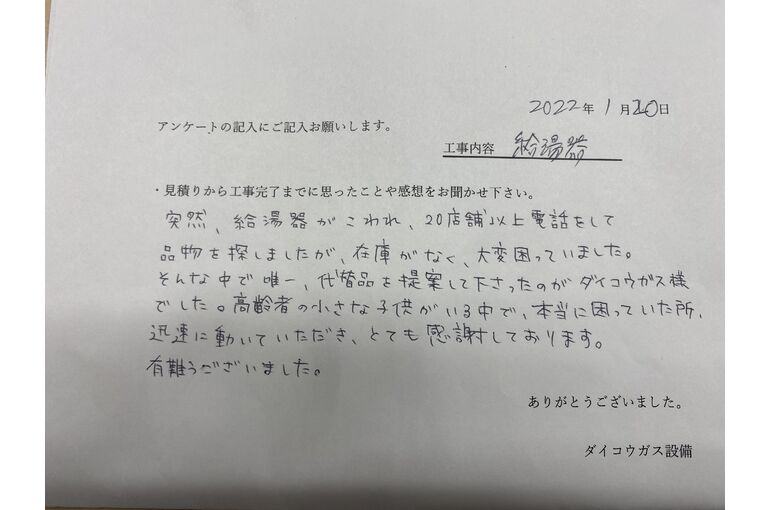 2022年 1月20日
アンケートの記入にご記入お願いします。
工事内容 給湯器
・見積りから工事完了までに思ったことや感想をお聞かせ下さい。
突然、給湯器がこわれ、20店舗以上電話をして
品物を探しましたが、在庫がなく、大変困っていました。
そんな中で唯一、代替品を提案して下さったのがダイコウガス様
でした。高齢者の小さな子供がいる中で、本当に困っていた所、
迅速に動いていただき、とても感謝しております。
有難うございました。
ありがとうございました。
ダイコウガス設備